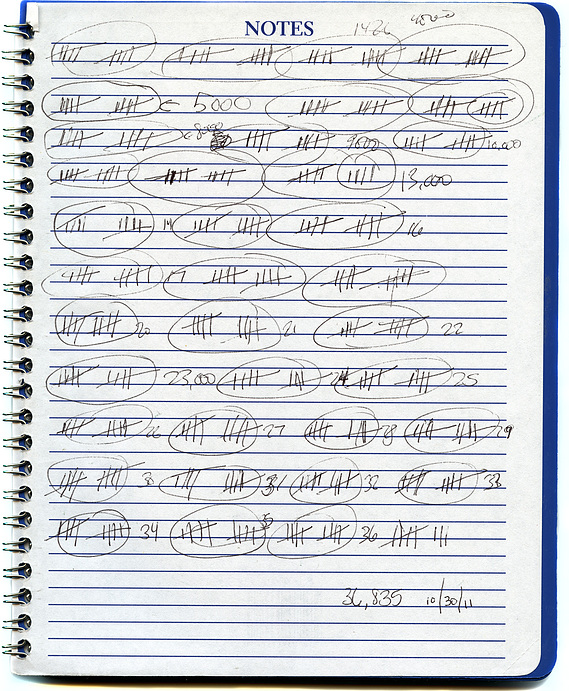 NOTES 1426 4000
5000
8000 9000 10,000
13,000
14 16
17
20 21 22
23,000 24 25
26 27 28 29
30 31 32 33
34 35 36
36,835 10/30/11